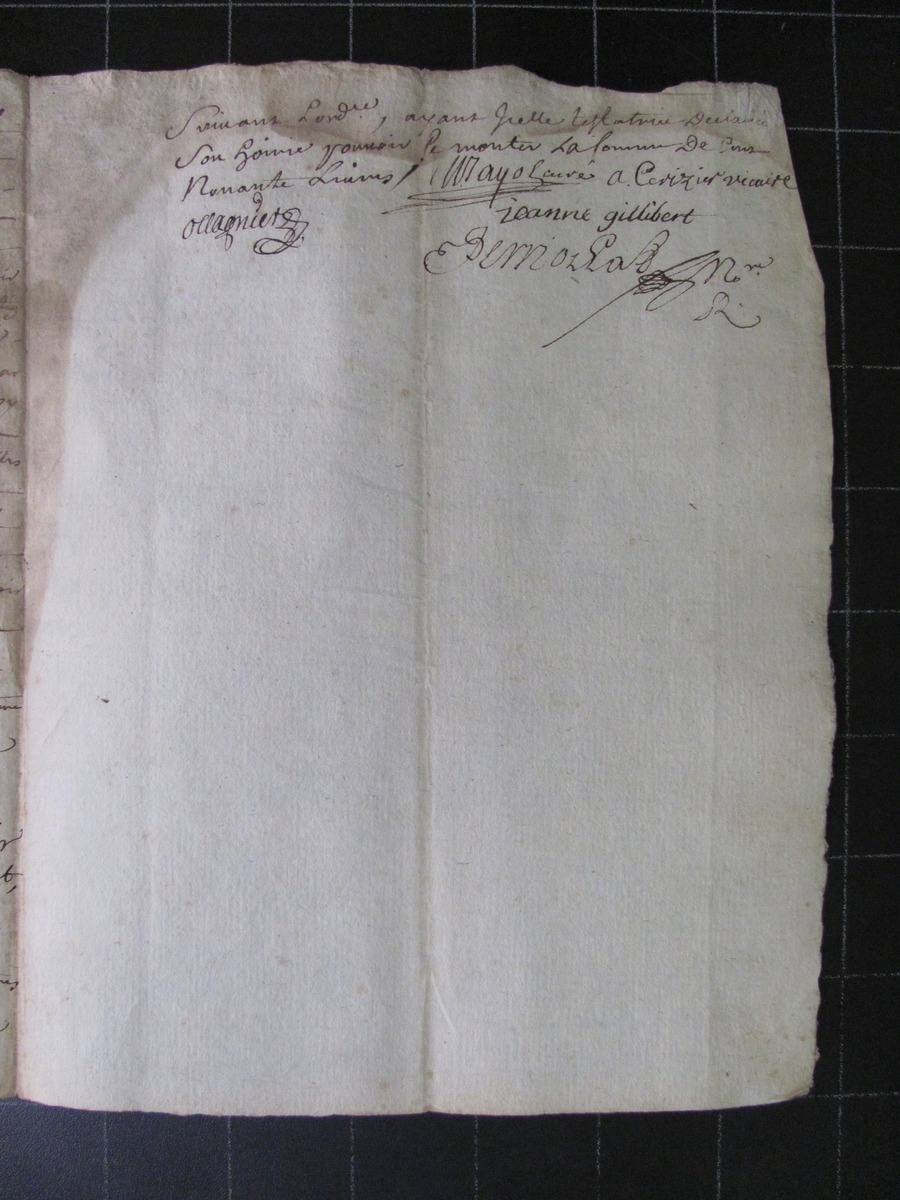 Suivant Lord.ce, ayant Icelle testatrice declaré
Son hoirie pouvoir Se monter La Somme De Cent
Nonante Livres / Mayol curé a. Cerizier vicaire
ollagnier jeanne gillibert
N.re
R.